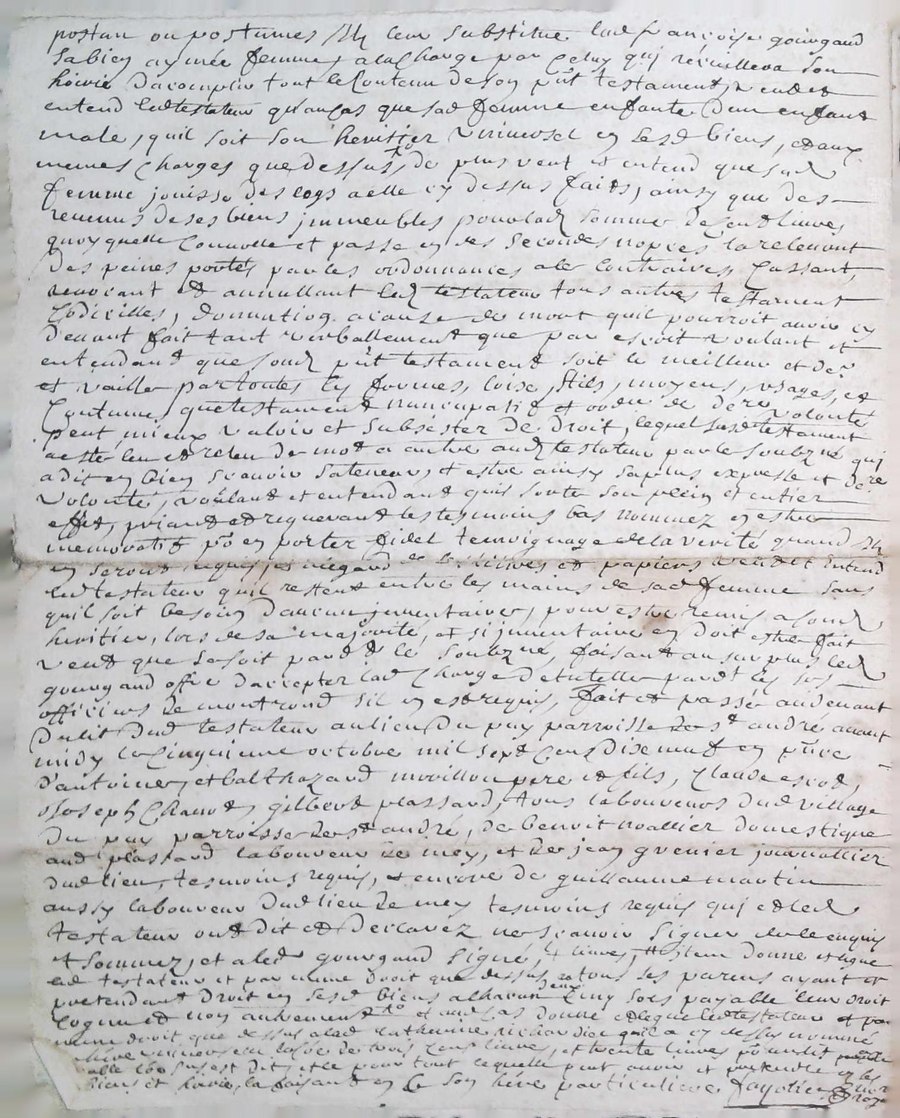 postan ou postumes Il leur substitue lad françoise gourgand
sa bien aymée femme, a la charge par celuy qui receuillera son
hoirie d'acomplir tout le contenu de son pnt testament, veut et
entend led testateur qu'au cas que sad femme enfante d'un enfant
male, quil soit son heritier universel en sesd biens, et aux
memes charges que dessus, de plus veut et entend que sad
femme jouisse des legs a elle cy dessus faits, ainsy que des
revenus de ses biens immeubles pour lad somme de cent livres
quoyquelle convolle et passe en des secondes nopces la relevant
des peines portés par les ordonnances a ce contraires, Cassant,
revocant et annullant led testateur tous autres testament
Codicilles, donnation a cause de mort quil pourroit avoir cy
devant fait tant verballement que par escrit voulant et
entendant que sond pnt testament soit le meilleur et der
et vaille par toutes les formes, loix, stils, moyens, usages, et
Coutume, que testament nuncupatif et ord de dere volonté
peut mieux valoir et subsister de droit, lequel susd testament
a esté leu et releu de mot a autre aud testateur par le soubzné qui
a dit en bien scavoir sa teneur, et estre ainsy sa plus expresse et dere
volonté, voulant et entendant quil sorte son plein et entier
effet, priant et requerant les tesmoins bas nommez en estre
memoratifs po en porter fidel temoignage de la verité quand Ils
en seront requis, et a legard de ses titres et papiers veut et entend
led testateur quil restent entre les mains de sad femme sans
quil soit besoin d'aucun inventaire, pour estre remis a sond
heritier, lors de sa majorité, et si inventaire en doit estre fait
veut que se soit pardt le soubzné, faisant au surplus led
gourgand offre d'accepter lad charge de tutelle pardt les srs
officiers de montrond sil en est requis, fait et passé au devant
du lit dud testateur au lieu du puy parroisse de st andré avant
midy le cinquieme octobre mil sept cens dise neuf en pnce
d'antoine, et balthazard morillon pere et fils, Claude escot,
Joseph Chanut, gilbert plassard, tous laboureurs dud village
du puy parroisse de st andré, de benoit noallier domestique
aud plassard laboureur de mey, et de jean grenier journallier
dud lieu, tesmoins requis, et encore de guillaume martin
aussy laboureur dud lieu de mey tesmoins requis qui et led
testateur ont dit et declarez ne scavoir signer de ce enquis
et sommez, et a led gourgand signé, donne et legue
led testateur et par meme droit que dessus a tous ses parens ayant et
pretendant droit en sesd biens a chacun cinq sols payable leur droit
cognu et non autrement et aud cas donne et legue led testateur et par
meme droit que dessus a lad Catherine quil a cy dessus nommé
heritiere universelle de trois cens livres, et trente livres
est dit, et ce pour tout ce quelle peut avoir et pretendre en ses
biens et hoirie, la faisant en ce son here particuliere